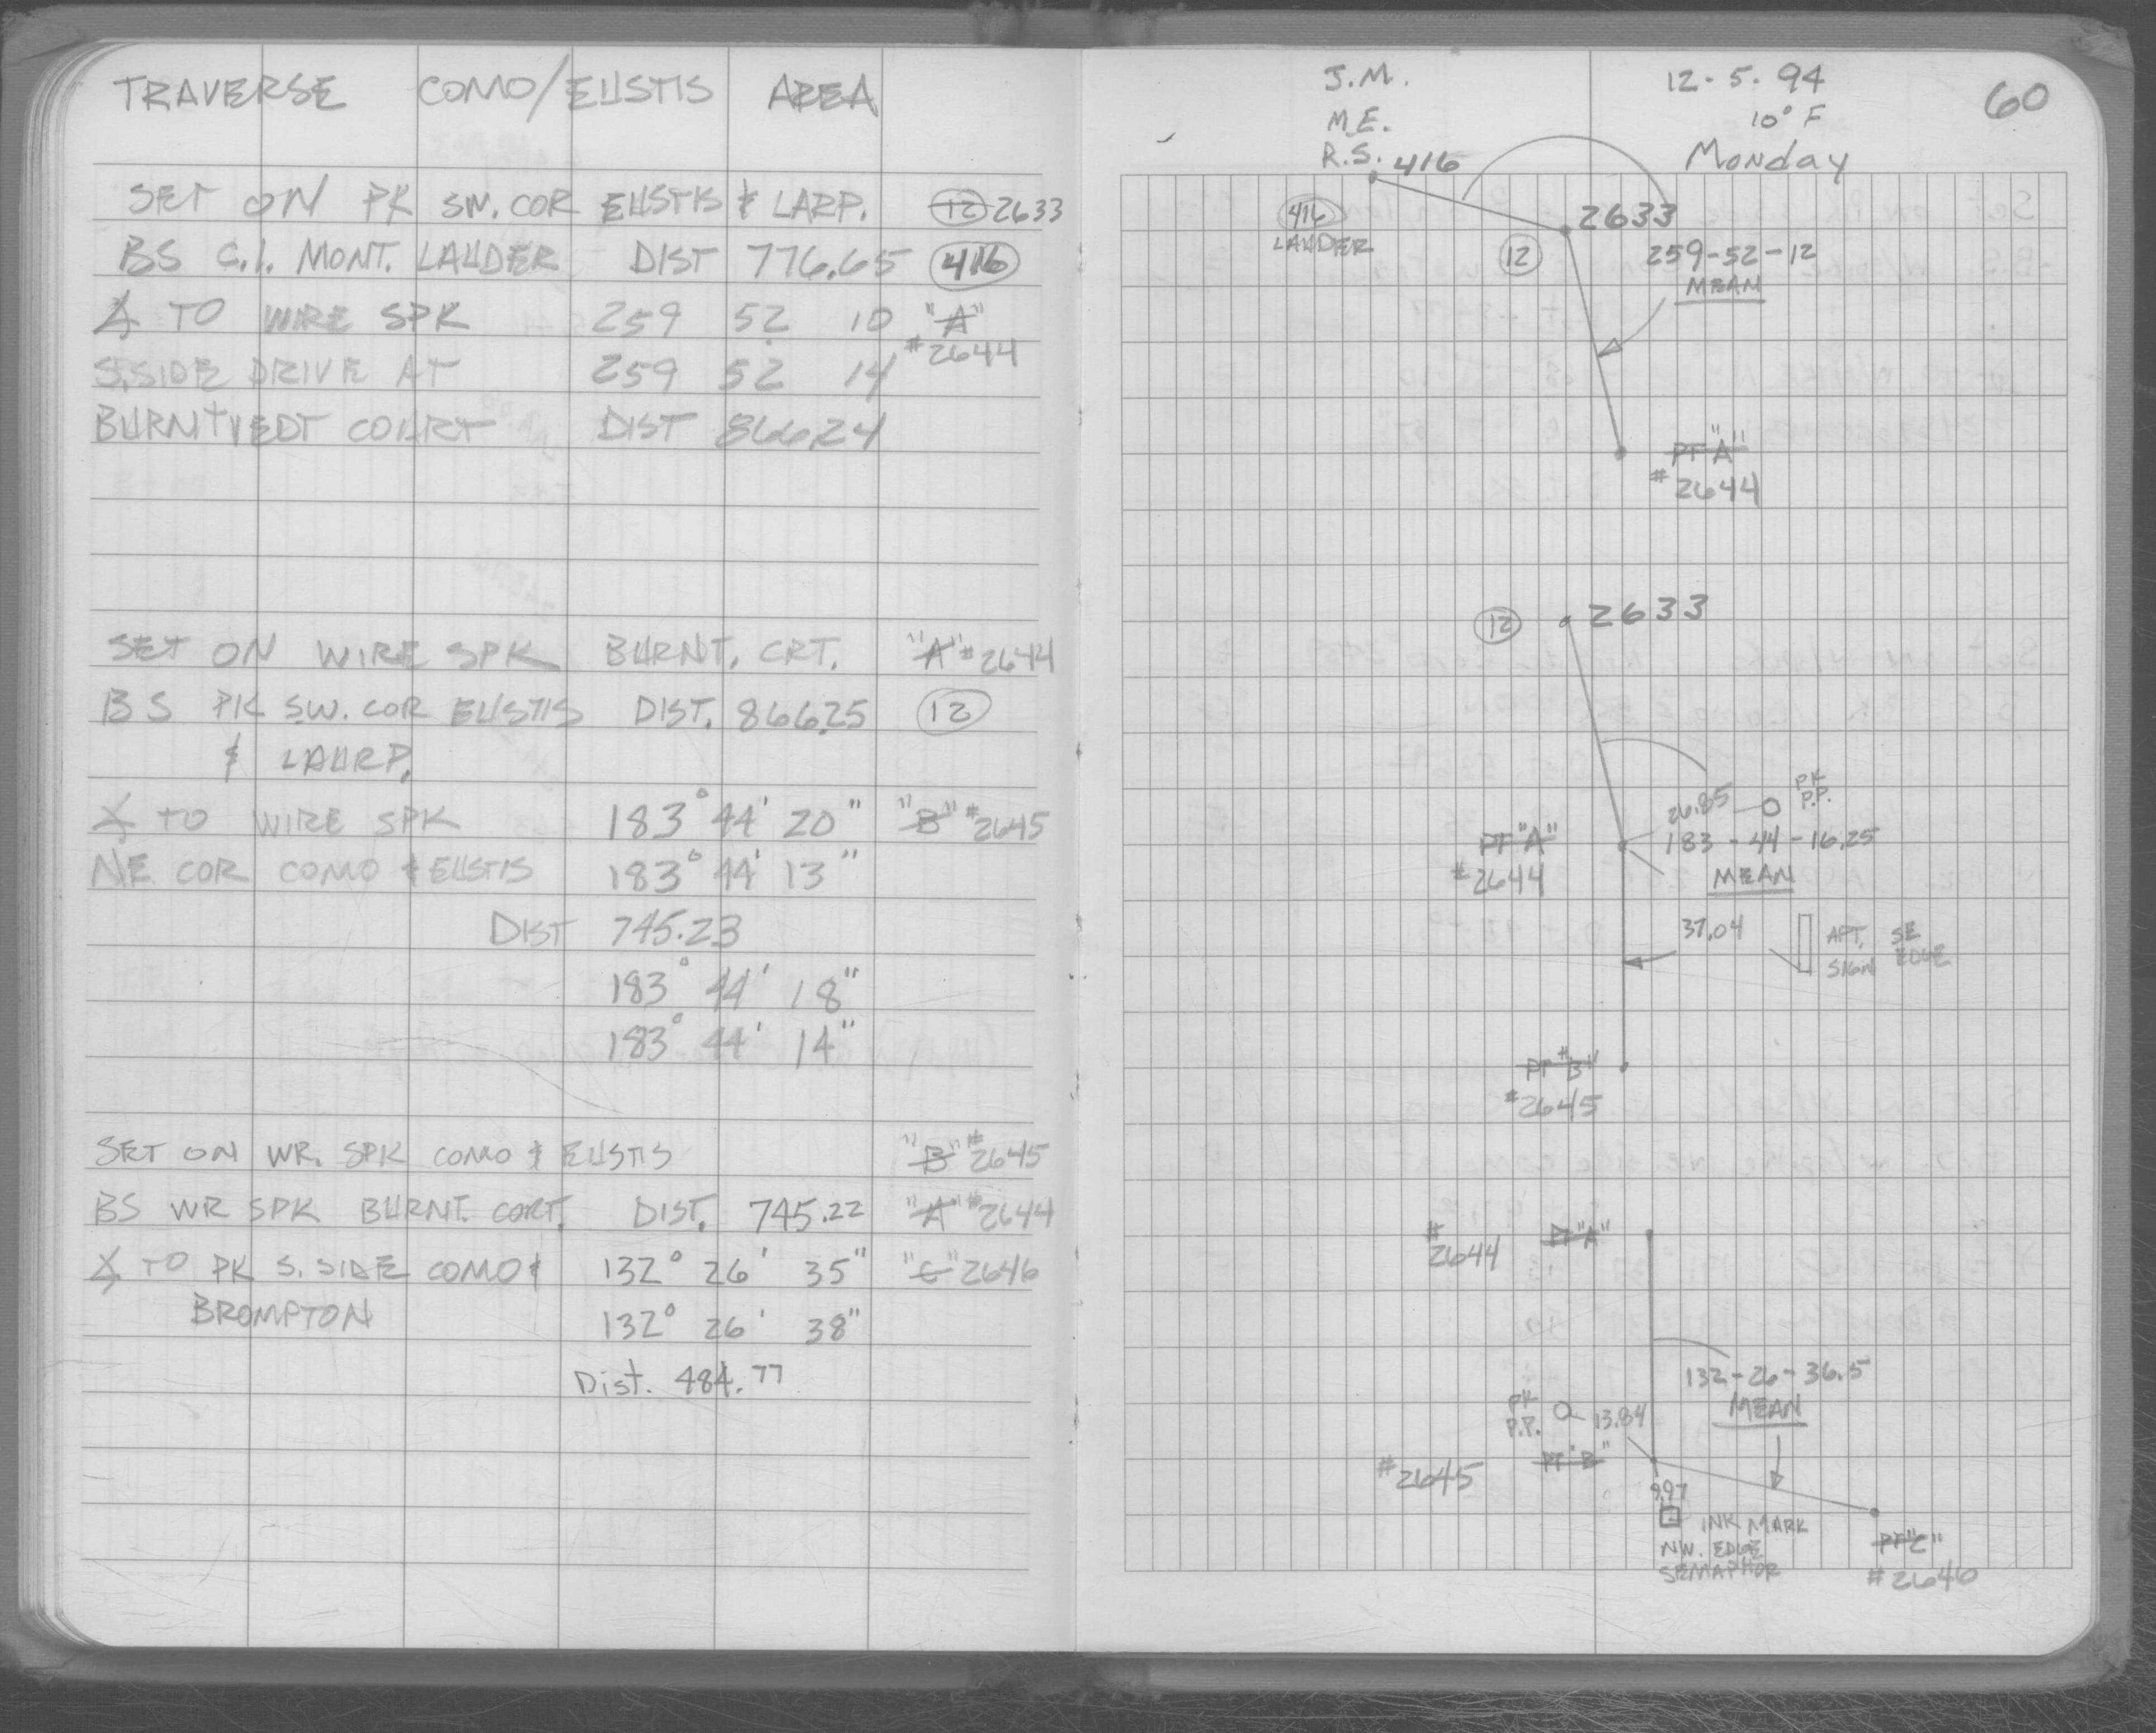 TRAVERSE COMO/EUSTIS AREA
SET ON PK SW. COR EUSTIS & LARP. 12 2633
BS C.I. MONT. LAUDER DIST 776.65 416
∡ TO WIRE SPK 259 52 10 "A"
#2644
S. SIDE DRIVE AT 259 52 14
BURNTVEDT COURT DIST 866.24
SET ON WIRE SPK BURNT. CRT. "A" #2644
BS PK SW. COR EUSTIS DIST. 866.25 12
& LAURP.
∡ TO WIRE SPK 183° 44' 20" "B" #2645
NE COR COMO & EUSTIS 183° 44' 13"
DIST 745.23
183° 44' 18"
183° 44' 14"
SET ON WR. SPK COMO & EUSTIS "B" #2645
BS WR SPK BURNT. CORT. DIST. 745.22 "A" #2644
∡ TO PK S. SIDE COMO & 132° 26' 35" "C" 2646
BROMPTON 132° 26' 38"
Dist. 484.77
J.M. 12-5-94 60
M.E. 10° F
R.S. Monday
416
416
LAUDER
2633
12
259-52-12
MEAN
PT "A"
#2644
12 2633
26.85 PK
P.P.
PT "A" 183-44-16.25
#2644 MEAN
37.04 APT. SE
SIGN EDGE
PT "B"
#2645
#2644 PT "A"
132-26-36.5
MEAN
PK
P.P. 13.84
#2645 PT "B"
9.97
INK MARK
NW. EDGE
SEMAPHOR
PT "C"
#2646